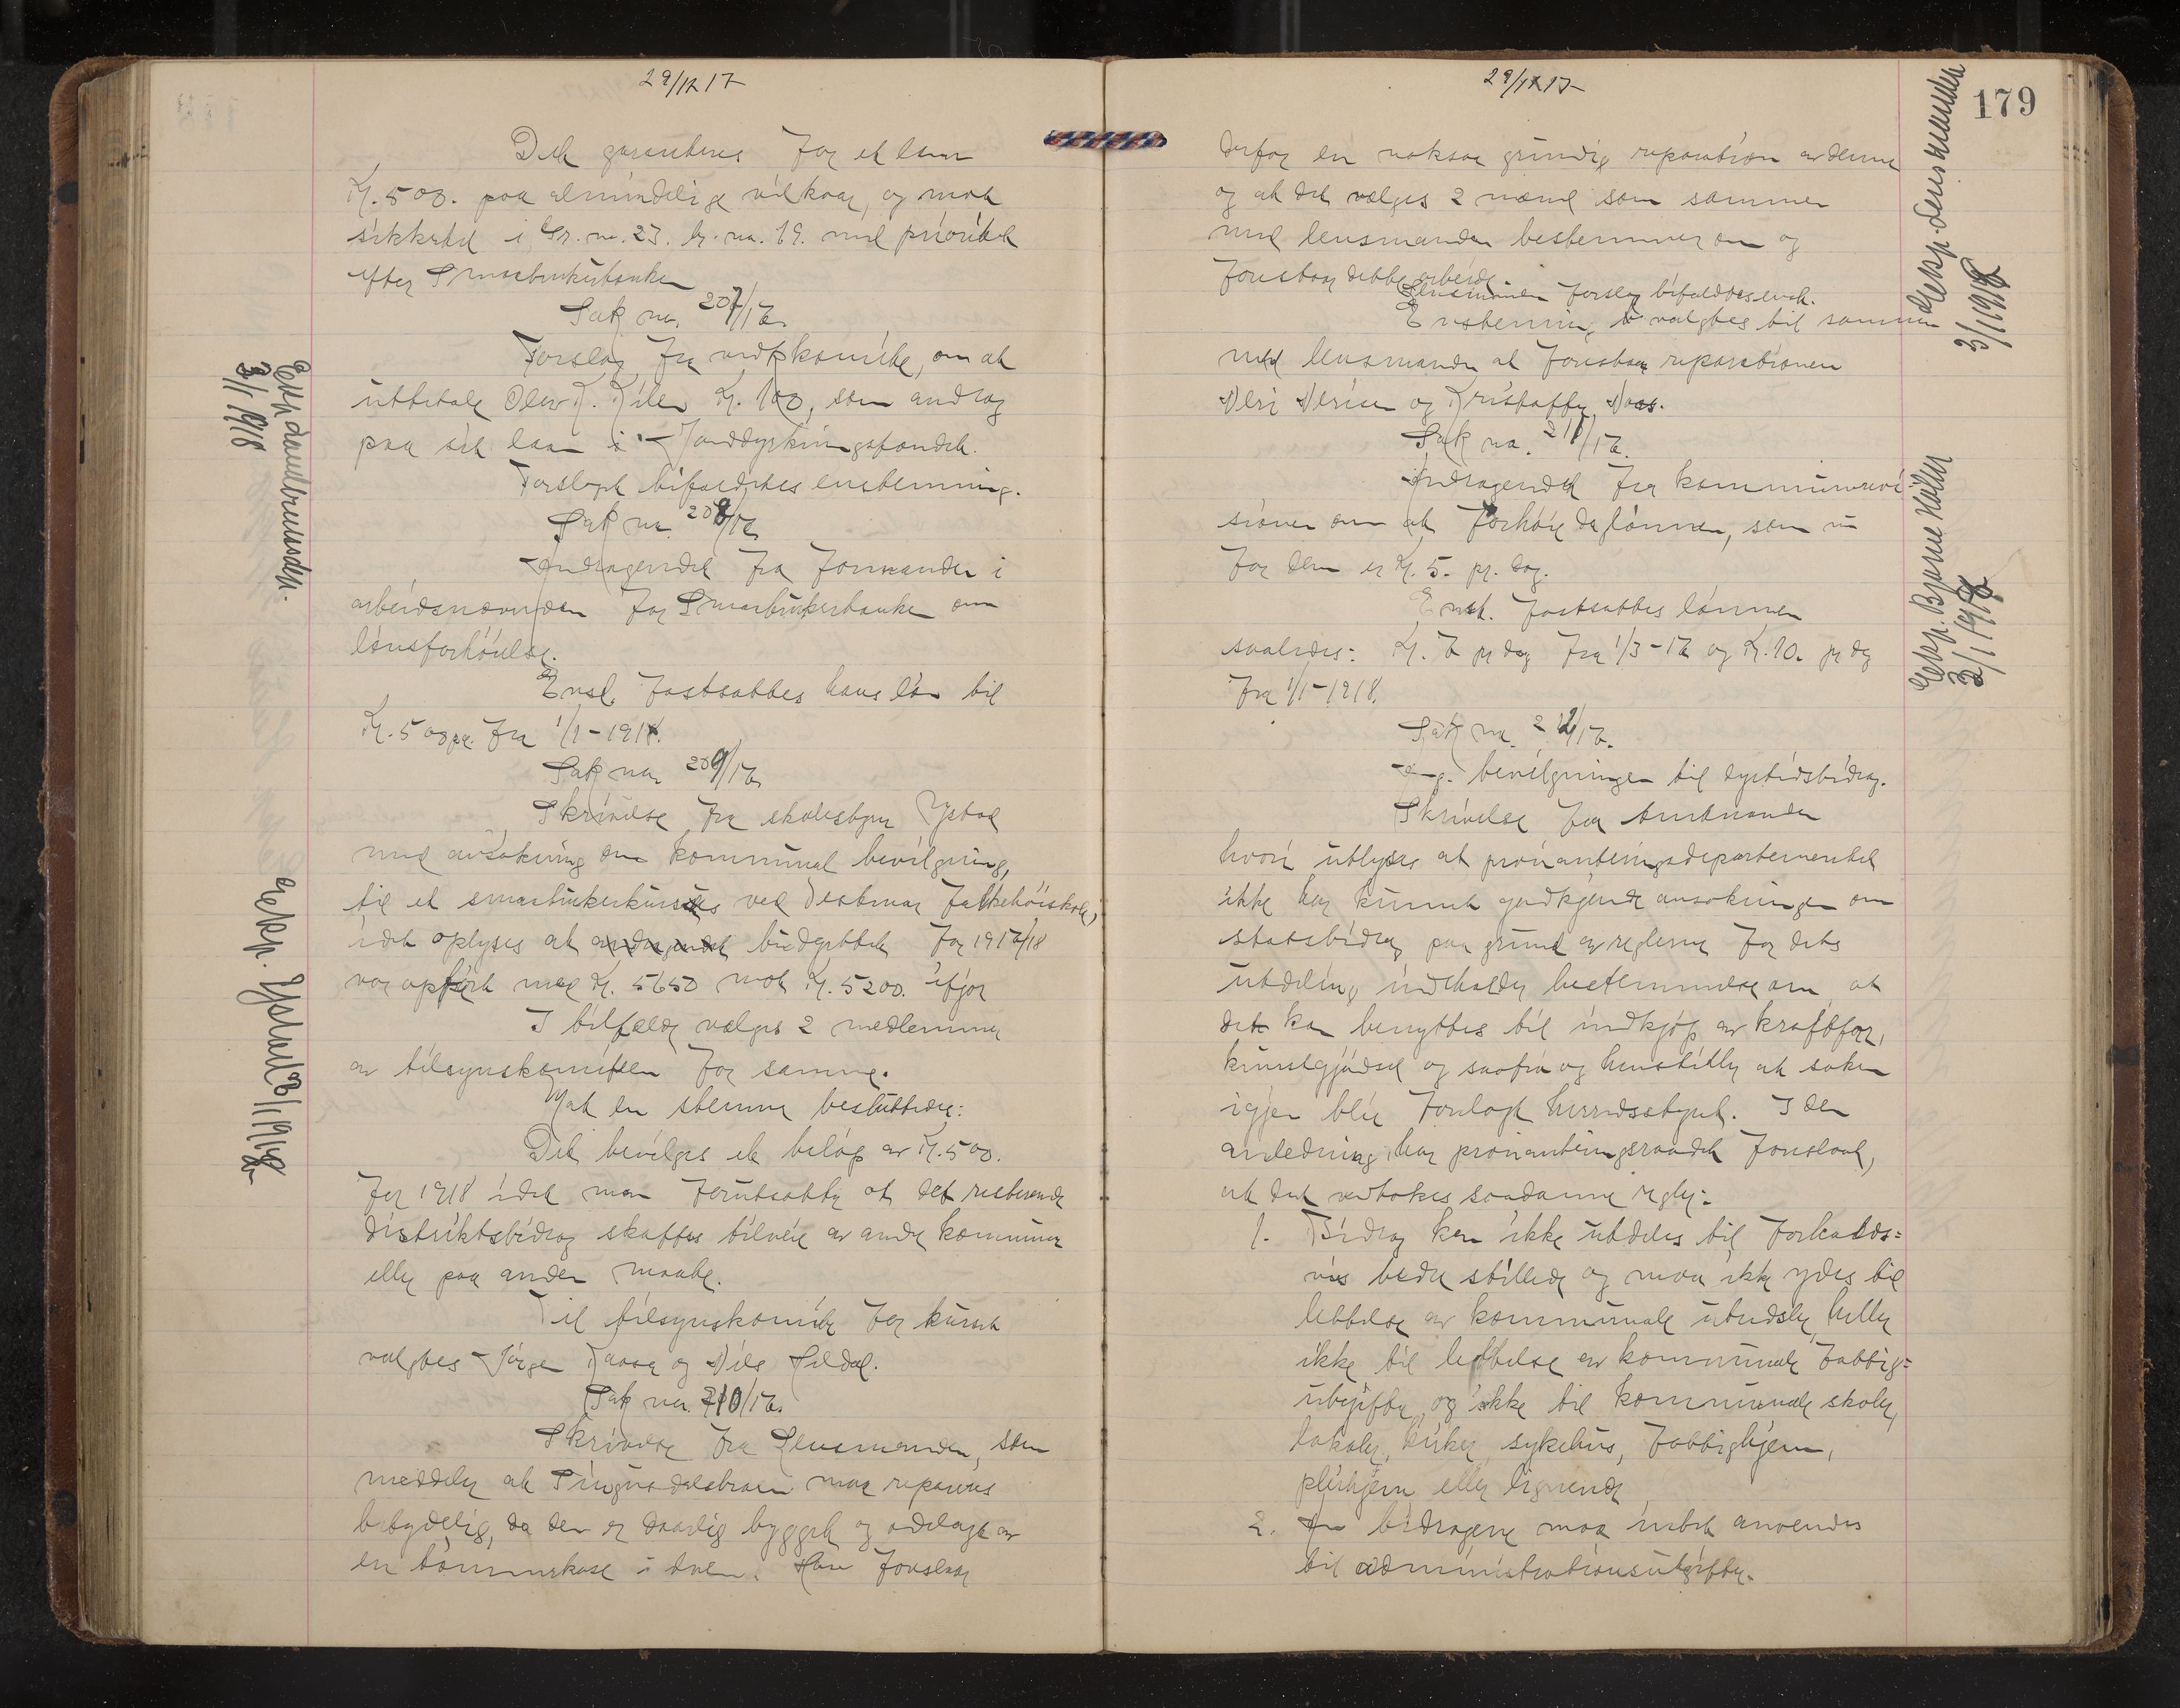 29/12 17
Det garanteres for et laan
Kr. 500. paa almindelige vilkaar, og mot
sikkerhet i Gr. no. 23. br. no. 19. med prioritet
efter Smaabrukerbanken
Sak no. 207/17.
Forslag fra vedk. komite, om at
utbetale Olav K. Kilen Kr. 100, som andrag
paa sit laan i Jorddyrkningsfondet.
Forslaget bifaldtes enstemmig.
Sak no. 208/17.
Andragendet fra formanden i
arbeidsnævnden for Smaabrukerbanken om
lönsforhöielse.
Enst. fastsattes hans lön til
Kr. 50 pr. fra 1/1-1918.
Sak no. 209/17.
Skrivelse fra skolestyrer Ystad
med ansökning om kommunal bevilgning,
til et smaabrukerkursus ved Vestmar Folkehöiskole,
idet oplyses at budgettet for 1917/18
var opfört med Kr. 5650 mot Kr. 5200. ifjor
I tilfælde vælges 2 medlemmer
av tilsynskomiteen for samme.
Mot en stemme besluttedes:
Det bevilges et belöp av Kr. 500.
for 1918 idet man forutsætter at det resterende
distriktsbidrag skaffes tilveie av andre kommuner
eller paa anden maate.
Til tilsynskomite for kurset
valgtes Jörgen Kaasa og Nils Lildal.
Sak no. 210/17.
Skrivelse fra Lensmanden, som
meddeler at broen maa repareres
betydelig, da den er daarlig bygget og ödelagt av
en tömmerhase i elven. Han foreslaar
Eksp. landbruksdep.
3/1 1918
Eksp. Ystad 3/1 1918
29/12 17
179
derfor en noksaa grundig reparation av denne
og at det vælges 2 mænd som sammen
med lensmanden bestemmer om og
forestaar dette arbeide.
Lensmanden forslag bifaldtes enst.
Enstemmig valgtes til sammen
med lensmanden at forestaa reparationen
og Kristoffer Naas.
Sak no. 211/17.
Andragendet fra kommunerevi
sionen om at forhöie daglönnen, som nu
for dem er Kr. 5. pr. dag.
Enst. fastsattes lönnen
saaledes: Kr. 7 pr dag fra 1/3-17 og Kr. 10. pr dag
fra 1/1-1918.
Sak no. 212/17.
Ang. bevilgningen til dyrtidsbidrag.
Skrivelse fra Amtmanden
hvori utlyses at proviantringsdepartementet
ikke har kunnet godkjende ansökningen om
statsbidrag paa grund av reglerne for dets
utdeling indeholder bestemmelse om at
det kan benyttes til indkjöp av kraftfor,
kunstgjödsel og saafrö og henstiller at saken
igjen blir forelagt herredsstyret. I den
anledning har proviantringsraadet foreslaat,
at det vedtokes saadanne regler:
1. Bidrag kan ikke utdeles til forholds=
vis bedre stillede og maa ikke ydes til
lettelse av kommunale utredsler, heller
ikke til lettelse av kommunale fattig=
utgifter, og ikke til kommunale skoler,
lokaler, kirker, sykehus, fattighjem,
pleiehjem eller lignende
2. Av bidragene maa intet anvendes
til administrationsutgifter.
Eksp. lensmanden
3/1 1918
Eksp. Bjarne
3/1 1918